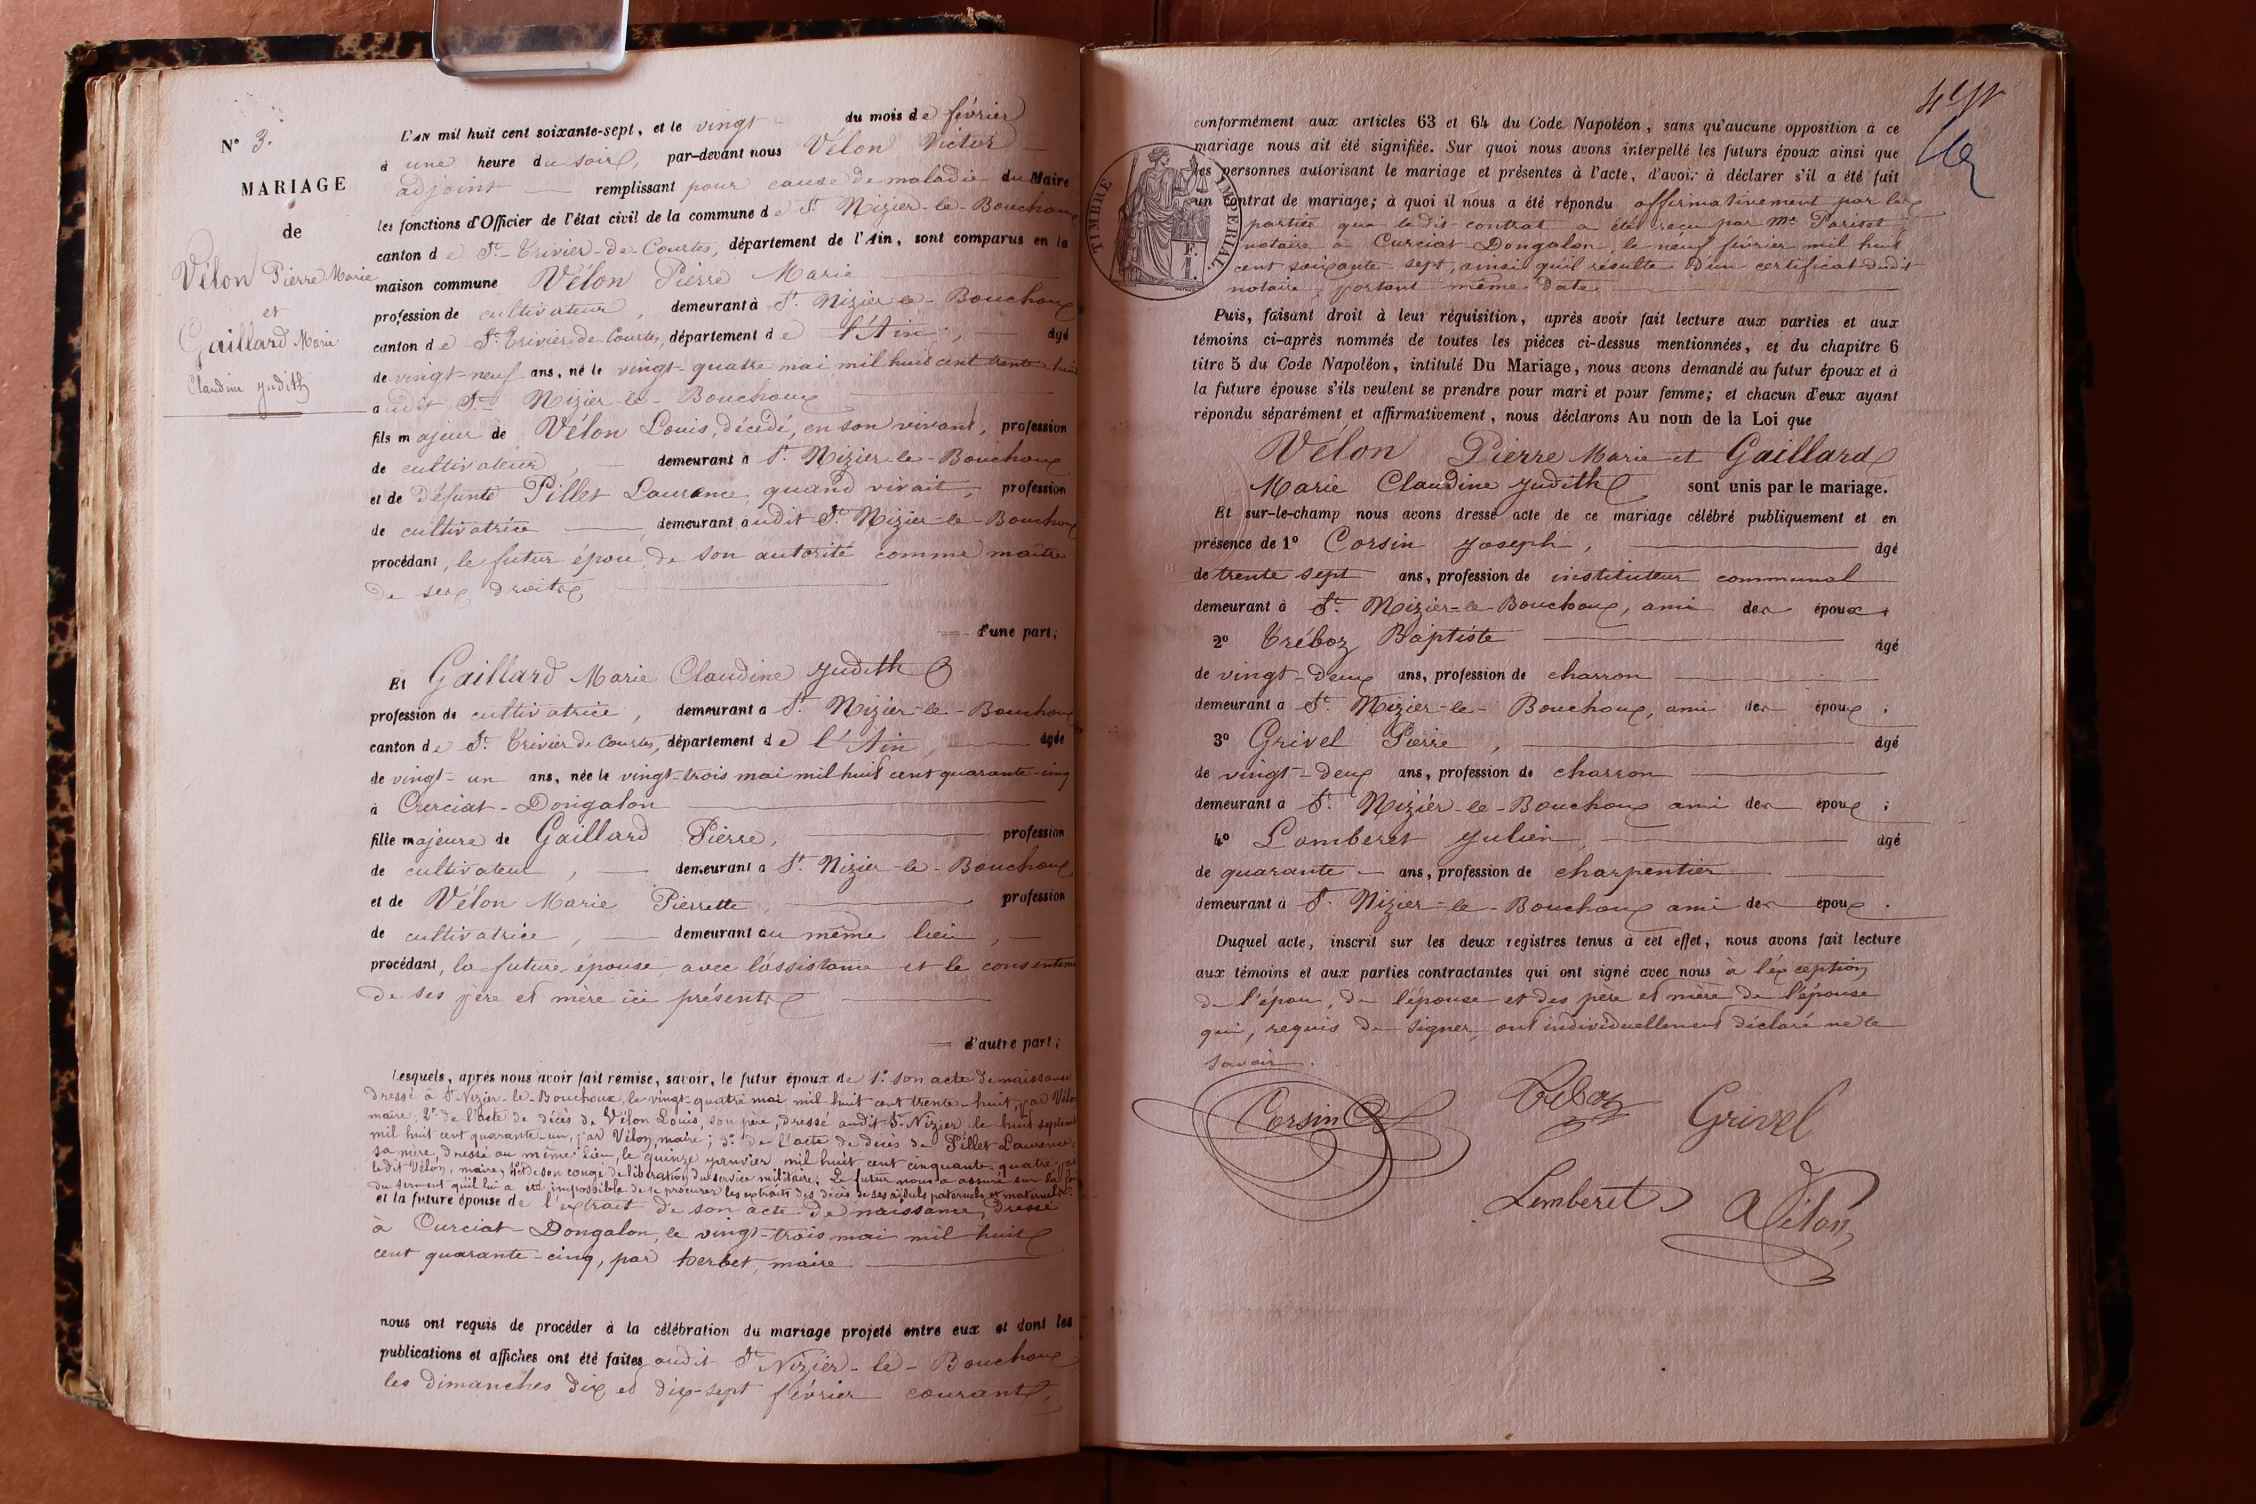 N° 3.
MARIAGE
de
Vélon Pierre Marie
et
Gaillard Marie
Claudine Judith
L'AN mil huit cent soixante-sept, et le vingt du mois de février
à une heure du soir, par-devant nous Vélon Victor
adjoint remplissant pour cause de maladie du Maire
les fonctions d'Officier de l'état civil de la commune de St Nizier-le-Bouchoux
canton de St-Trivier-de-Courtes, département de l'Ain, sont comparus en la
maison commune Vélon Pierre Marie
profession de cultivateur, demeurant à St Nizier-le-Bouchoux
canton de St Trivier de Courtes, département de l'Ain, âgé
de vingt-neuf ans, né le vingt-quatre mai mil huit cent trente-huit
audit St Nizier-le-Bouchoux
fils majeur de Vélon Louis, décédé, en son vivant, profession
de cultivateur, demeurant à St Nizier-le-Bouchoux
et de défunte Pillet Laurence quand vivait, profession
de cultivatrice, demeurant audit St Nizier-le-Bouchoux
procédant, le futur époux de son autorité comme maître
de ses droits
d'une part;
Et Gaillard Marie Claudine Judith
profession de cultivatrice, demeurant à St Nizier-le-Bouchoux
canton de St Trivier de Courtes, département de l'Ain, âgée
de vingt-un ans, née le vingt-trois mai mil huit cent quarante-cinq
à Curciat-Dongalon
fille majeure de Gaillard Pierre, profession
de cultivateur, demeurant à St Nizier-le-Bouchoux
et de Vélon Marie Pierrette, profession
de cultivatrice, demeurant au même lieu,
procédant, la future épouse avec l'assistance et le consentement
de ses père et mère ici présents
d'autre part;
Lesquels, après nous avoir fait remise, savoir, le futur époux de 1° son acte de naissance
dressé à St Nizier-le-Bouchoux, le vingt-quatre mai mil huit cent trente-huit, par Vélon
maire, 2° de l'acte de décès de Vélon Louis, son père, dressé audit St Nizier le huit septembre
mil huit cent quarante-un, par Vélon, maire; 3° de l'acte de décès de Pillet Laurence,
sa mère, dressé au même lieu, le quinze janvier mil huit cent cinquante-quatre par
ledit Vélon, maire, 4° de son congé de libération du service militaire. Le futur nous a assuré sur la foi
du serment qu'il lui a été impossible de se procurer les extraits des décès de ses aïeuls paternels et maternels
et la future épouse de l'extrait de son acte de naissance, dressé
à Curciat-Dongalon, le vingt-trois mai mil huit
cent quarante-cinq, par Herbet, maire
nous ont requis de procéder à la célébration du mariage projeté entre eux et dont les
publications et affiches ont été faites audit St Nizier-le-Bouchoux
les dimanches dix et dix-sept février courant,
TIMBRE IMPERIAL
conformément aux articles 63 et 64 du Code Napoléon, sans qu'aucune opposition à ce
mariage nous ait été signifiée. Sur quoi nous avons interpellé les futurs époux ainsi que
les personnes autorisant le mariage et présentes à l'acte, d'avoir à déclarer s'il a été fait
un contrat de mariage; à quoi il nous a été répondu affirmativement par les
parties que ledit contrat a été reçu par Me Parisot
notaire à Curciat-Dongalon, le neuf février mil huit
cent soixante-sept, ainsi qu'il résulte d'un certificat dudit
notaire, portant même date
Puis, faisant droit à leur réquisition, après avoir fait lecture aux parties et aux
témoins ci-après nommés de toutes les pièces ci-dessus mentionnées, et du chapitre 6
titre 5 du Code Napoléon, intitulé Du Mariage, nous avons demandé au futur époux et à
la future épouse s'ils veulent se prendre pour mari et pour femme; et chacun d'eux ayant
répondu séparément et affirmativement, nous déclarons Au nom de la Loi que
Vélon Pierre Marie et Gaillard
Marie Claudine Judith sont unis par le mariage.
Et sur-le-champ nous avons dressé acte de ce mariage célébré publiquement et en
présence de 1° Corsin Joseph, âgé
de trente sept ans, profession de instituteur communal
demeurant à St Nizier-le-Bouchoux, ami des époux.
2° Tréboz Baptiste âgé
de vingt-deux ans, profession de charron
demeurant à St Nizier-le-Bouchoux, ami des époux.
3° Grivel Pierre, âgé
de vingt-deux ans, profession de charron
demeurant à St Nizier-le-Bouchoux ami des époux;
4° Lomberet Julien, âgé
de quarante ans, profession de charpentier
demeurant à St Nizier-le-Bouchoux ami des époux.
Duquel acte, inscrit sur les deux registres tenus à cet effet, nous avons fait lecture
aux témoins et aux parties contractantes qui ont signé avec nous à l'exception
de l'époux, de l'épouse et des père et mère de l'épouse
qui, requis de signer, ont individuellement déclaré ne le
savoir.
Corsin
Grivel
Lemberet
Vélon